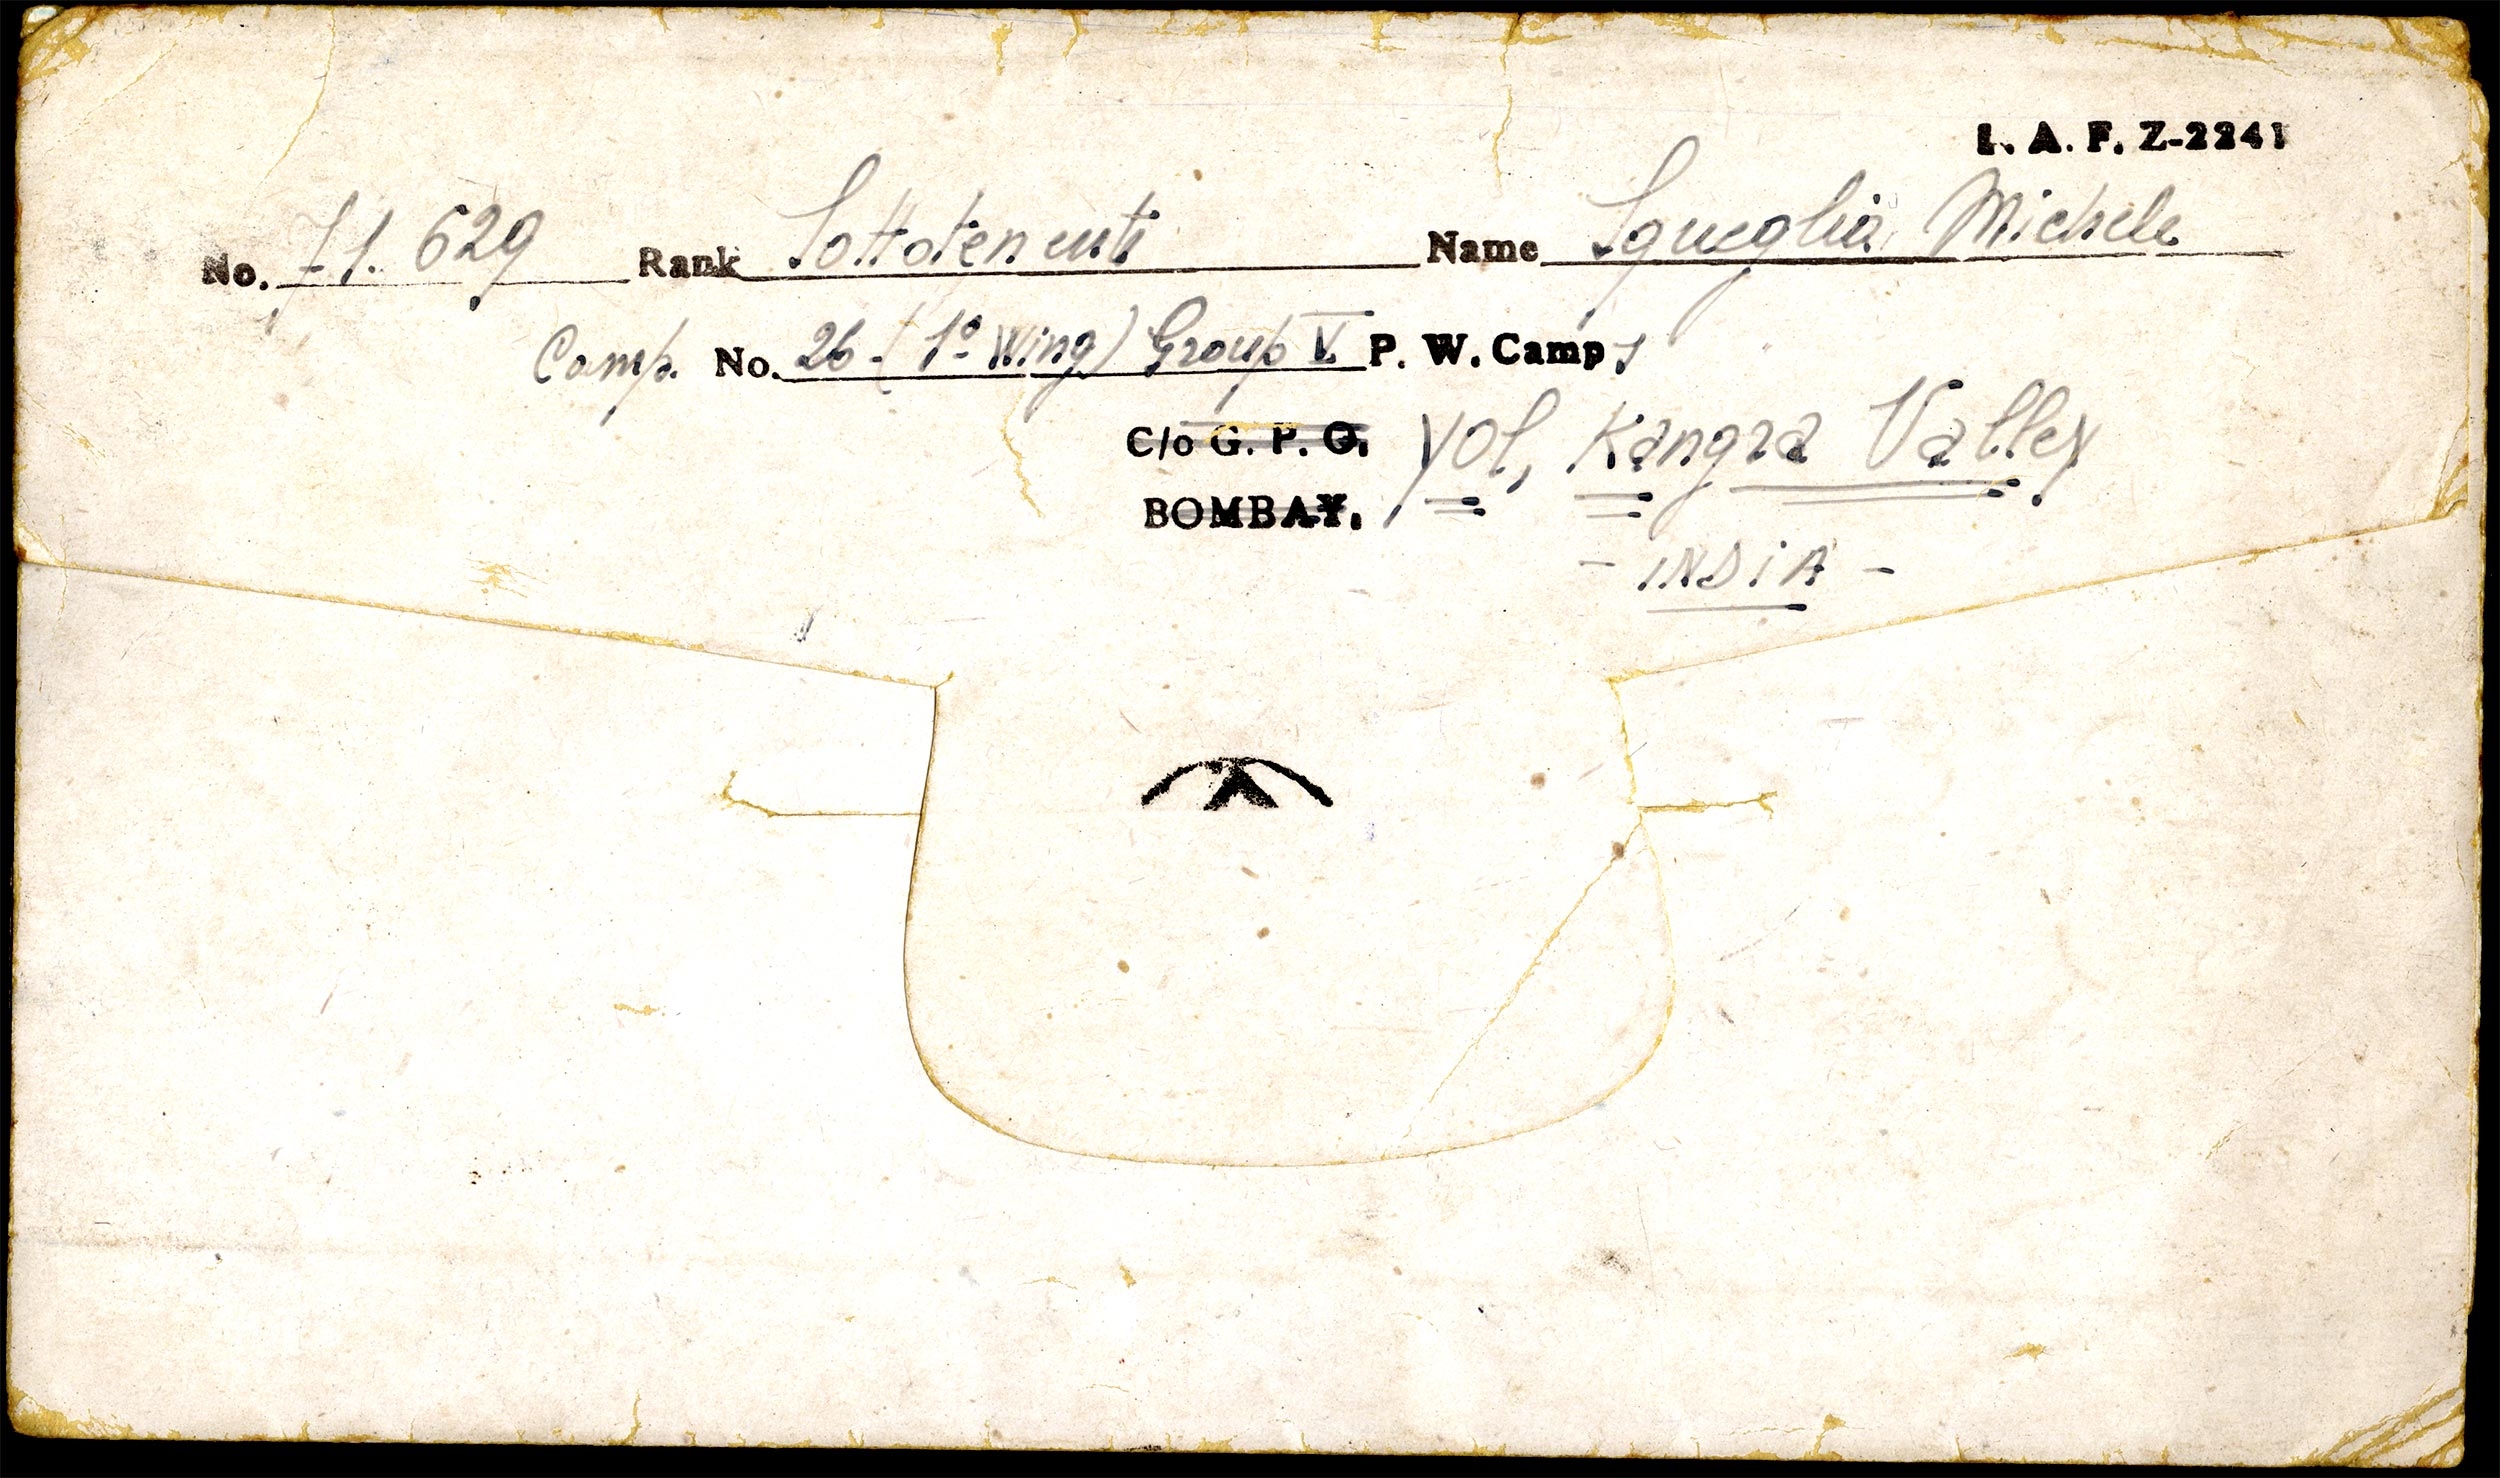 I. A. F. Z-2241
No. 71. 629 Rank Sottotenente Name Squeglia Michele
Camp. No. 26 - (1º Wing) Group V P. W. Camp,
C/o G. P. O. Yol, Kangra Valley
BOMBAY.
- INDIA -